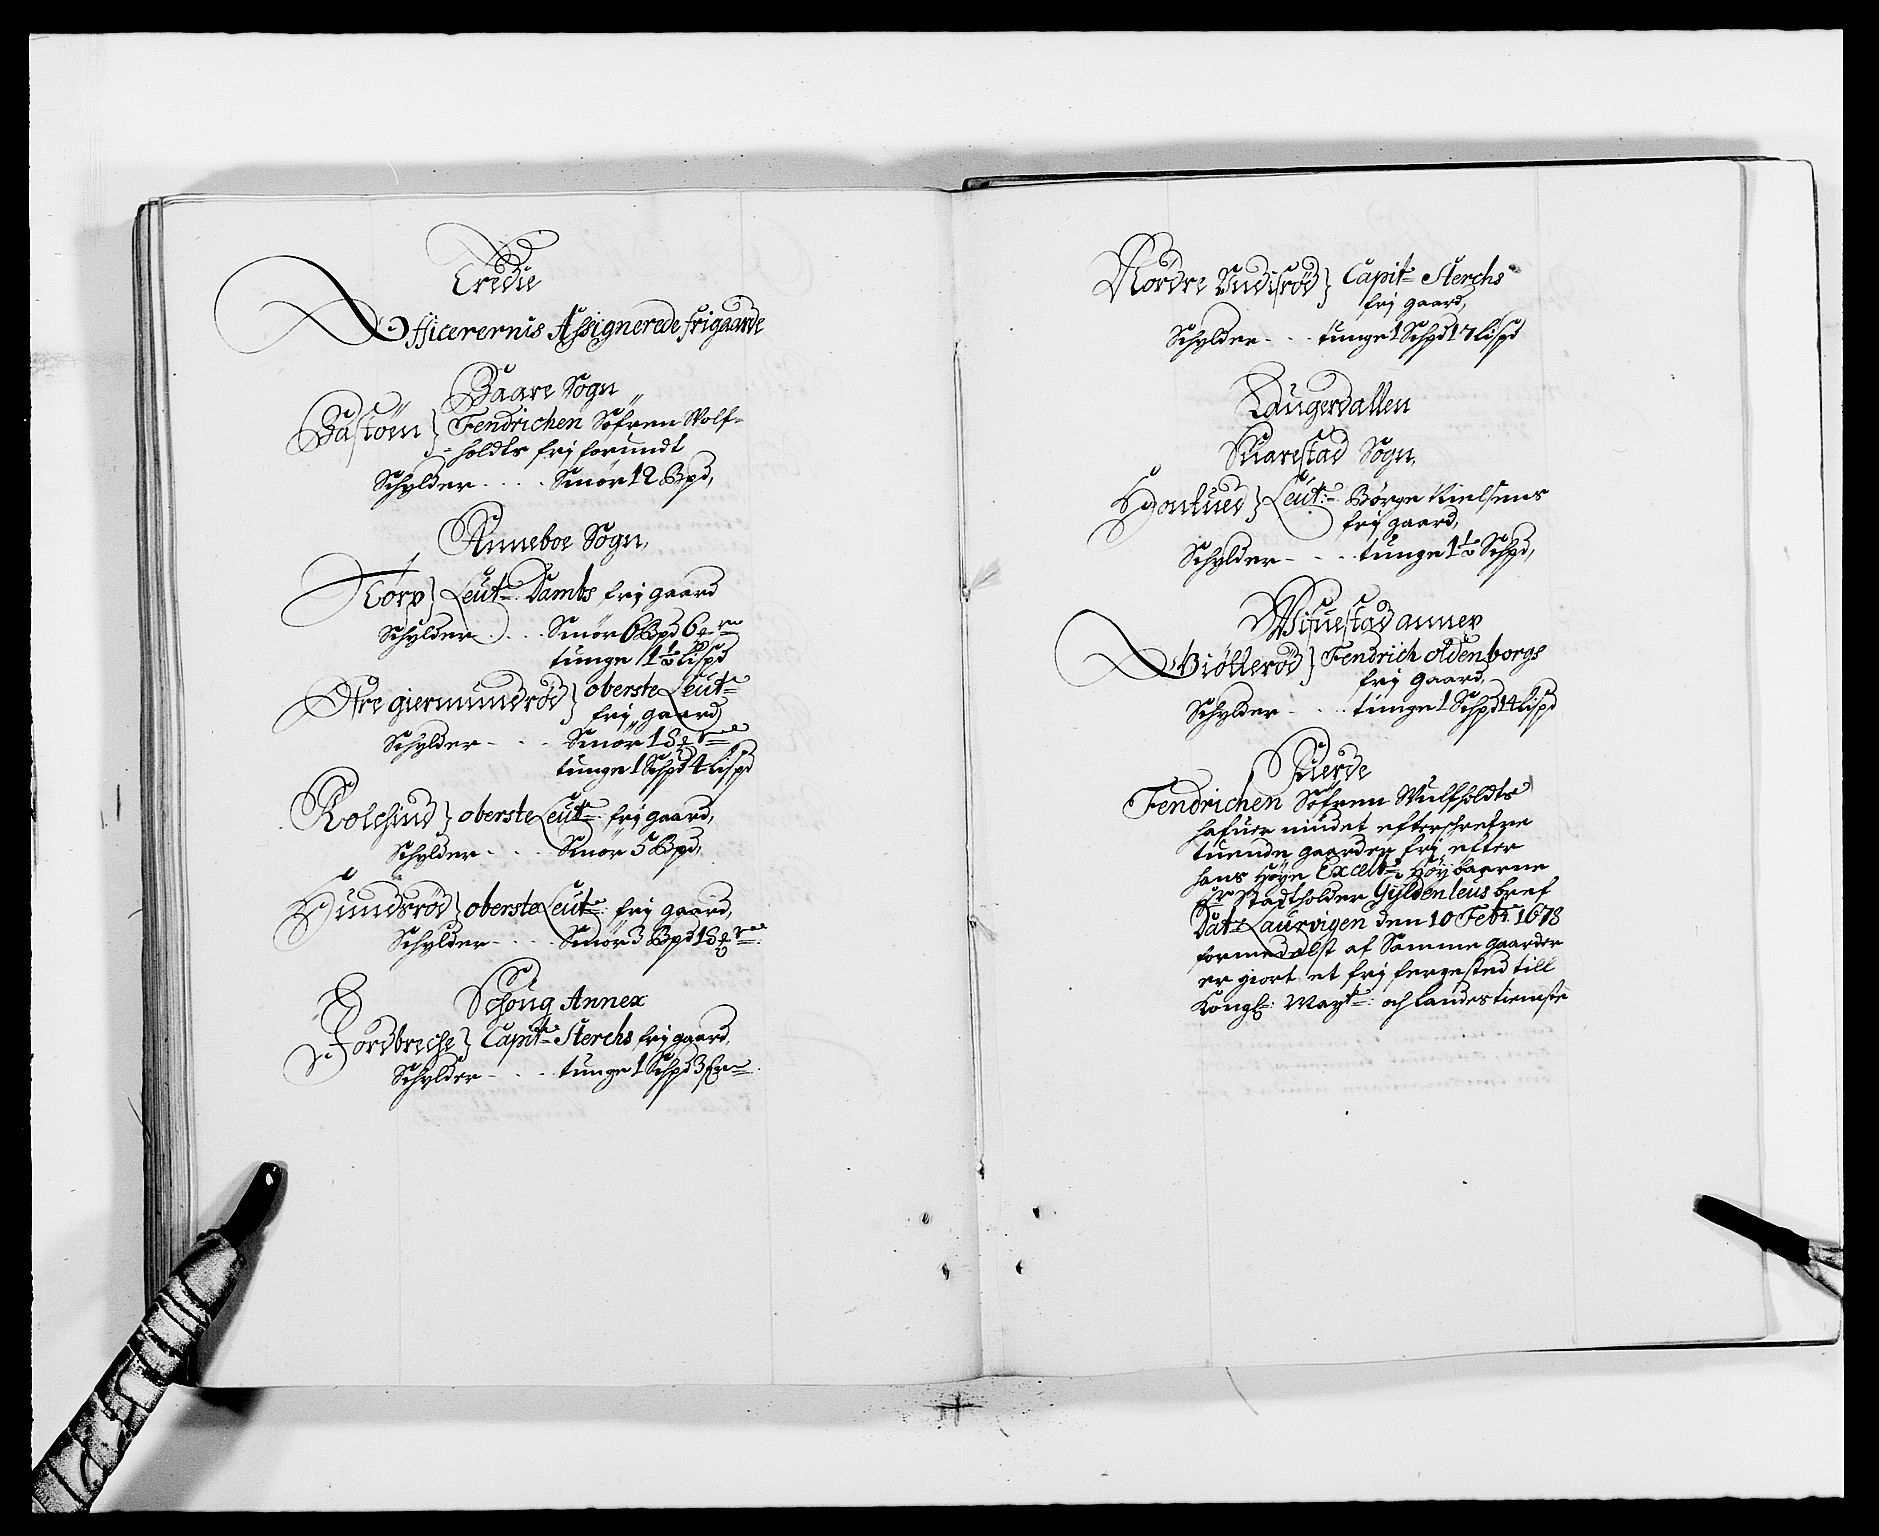 Tredie
Officerernis Assignerede frigaarde
Baare Sogn
Bastöen } Fendrichen Söfren Wolf-
-holdts frj forundt
Schylder . . . . Smör 12 Bpd,
Anneboe Sogn,
Torp } Leut: Dambs frj gaard
Schylder . . . . Smör 6 Bpd 6
tunge 1½ Lispd
giermundröd } oberste Leut:
frj gaard
Schylder - . . . Smör 1
tunge 1 Schpd 4 Lispd
Rolchind } oberste Leut: frj gaard,
Schylder - . . . Smör 5 Bpd,
Hundsröd } oberste Leut: frj gaard,
Schylder - . . . Smör 3 Bpd 1
Schoug Annex
Fordbreche } Capit: Sterchs frj gaard,
Schylder - . . . tunge 1 Schpd 3
Nordre } Capit: Sterchs
frj gaard,
Schylder - . . . tunge 1 Schpd 17 Lispd
Laugerdallen
Suarestad Sogn,
} Leut:- Börge Nielsens
frj gaard,
Schylder - . . . tunge 1½ Schpd,
Wifuestad annex
Giötteröd } Fendrich oldenborgs
frj gaard,
Schylder - . . . tunge 1 Schpd 14 Lispd
Fierde
Fendrichen Söfren Wulfholdts
hafuer niudet efterschrefne
tuende gaarder frj efter
hans Höye Excell: Höybaarne
Hr Stadtholder Gyldenleus bref
Dat: Laurvigen den 10 Feb: 1678
formedelst af Samme gaarder
er giort et frj fergested till
Kongl: Mayt: och Landes tieniste